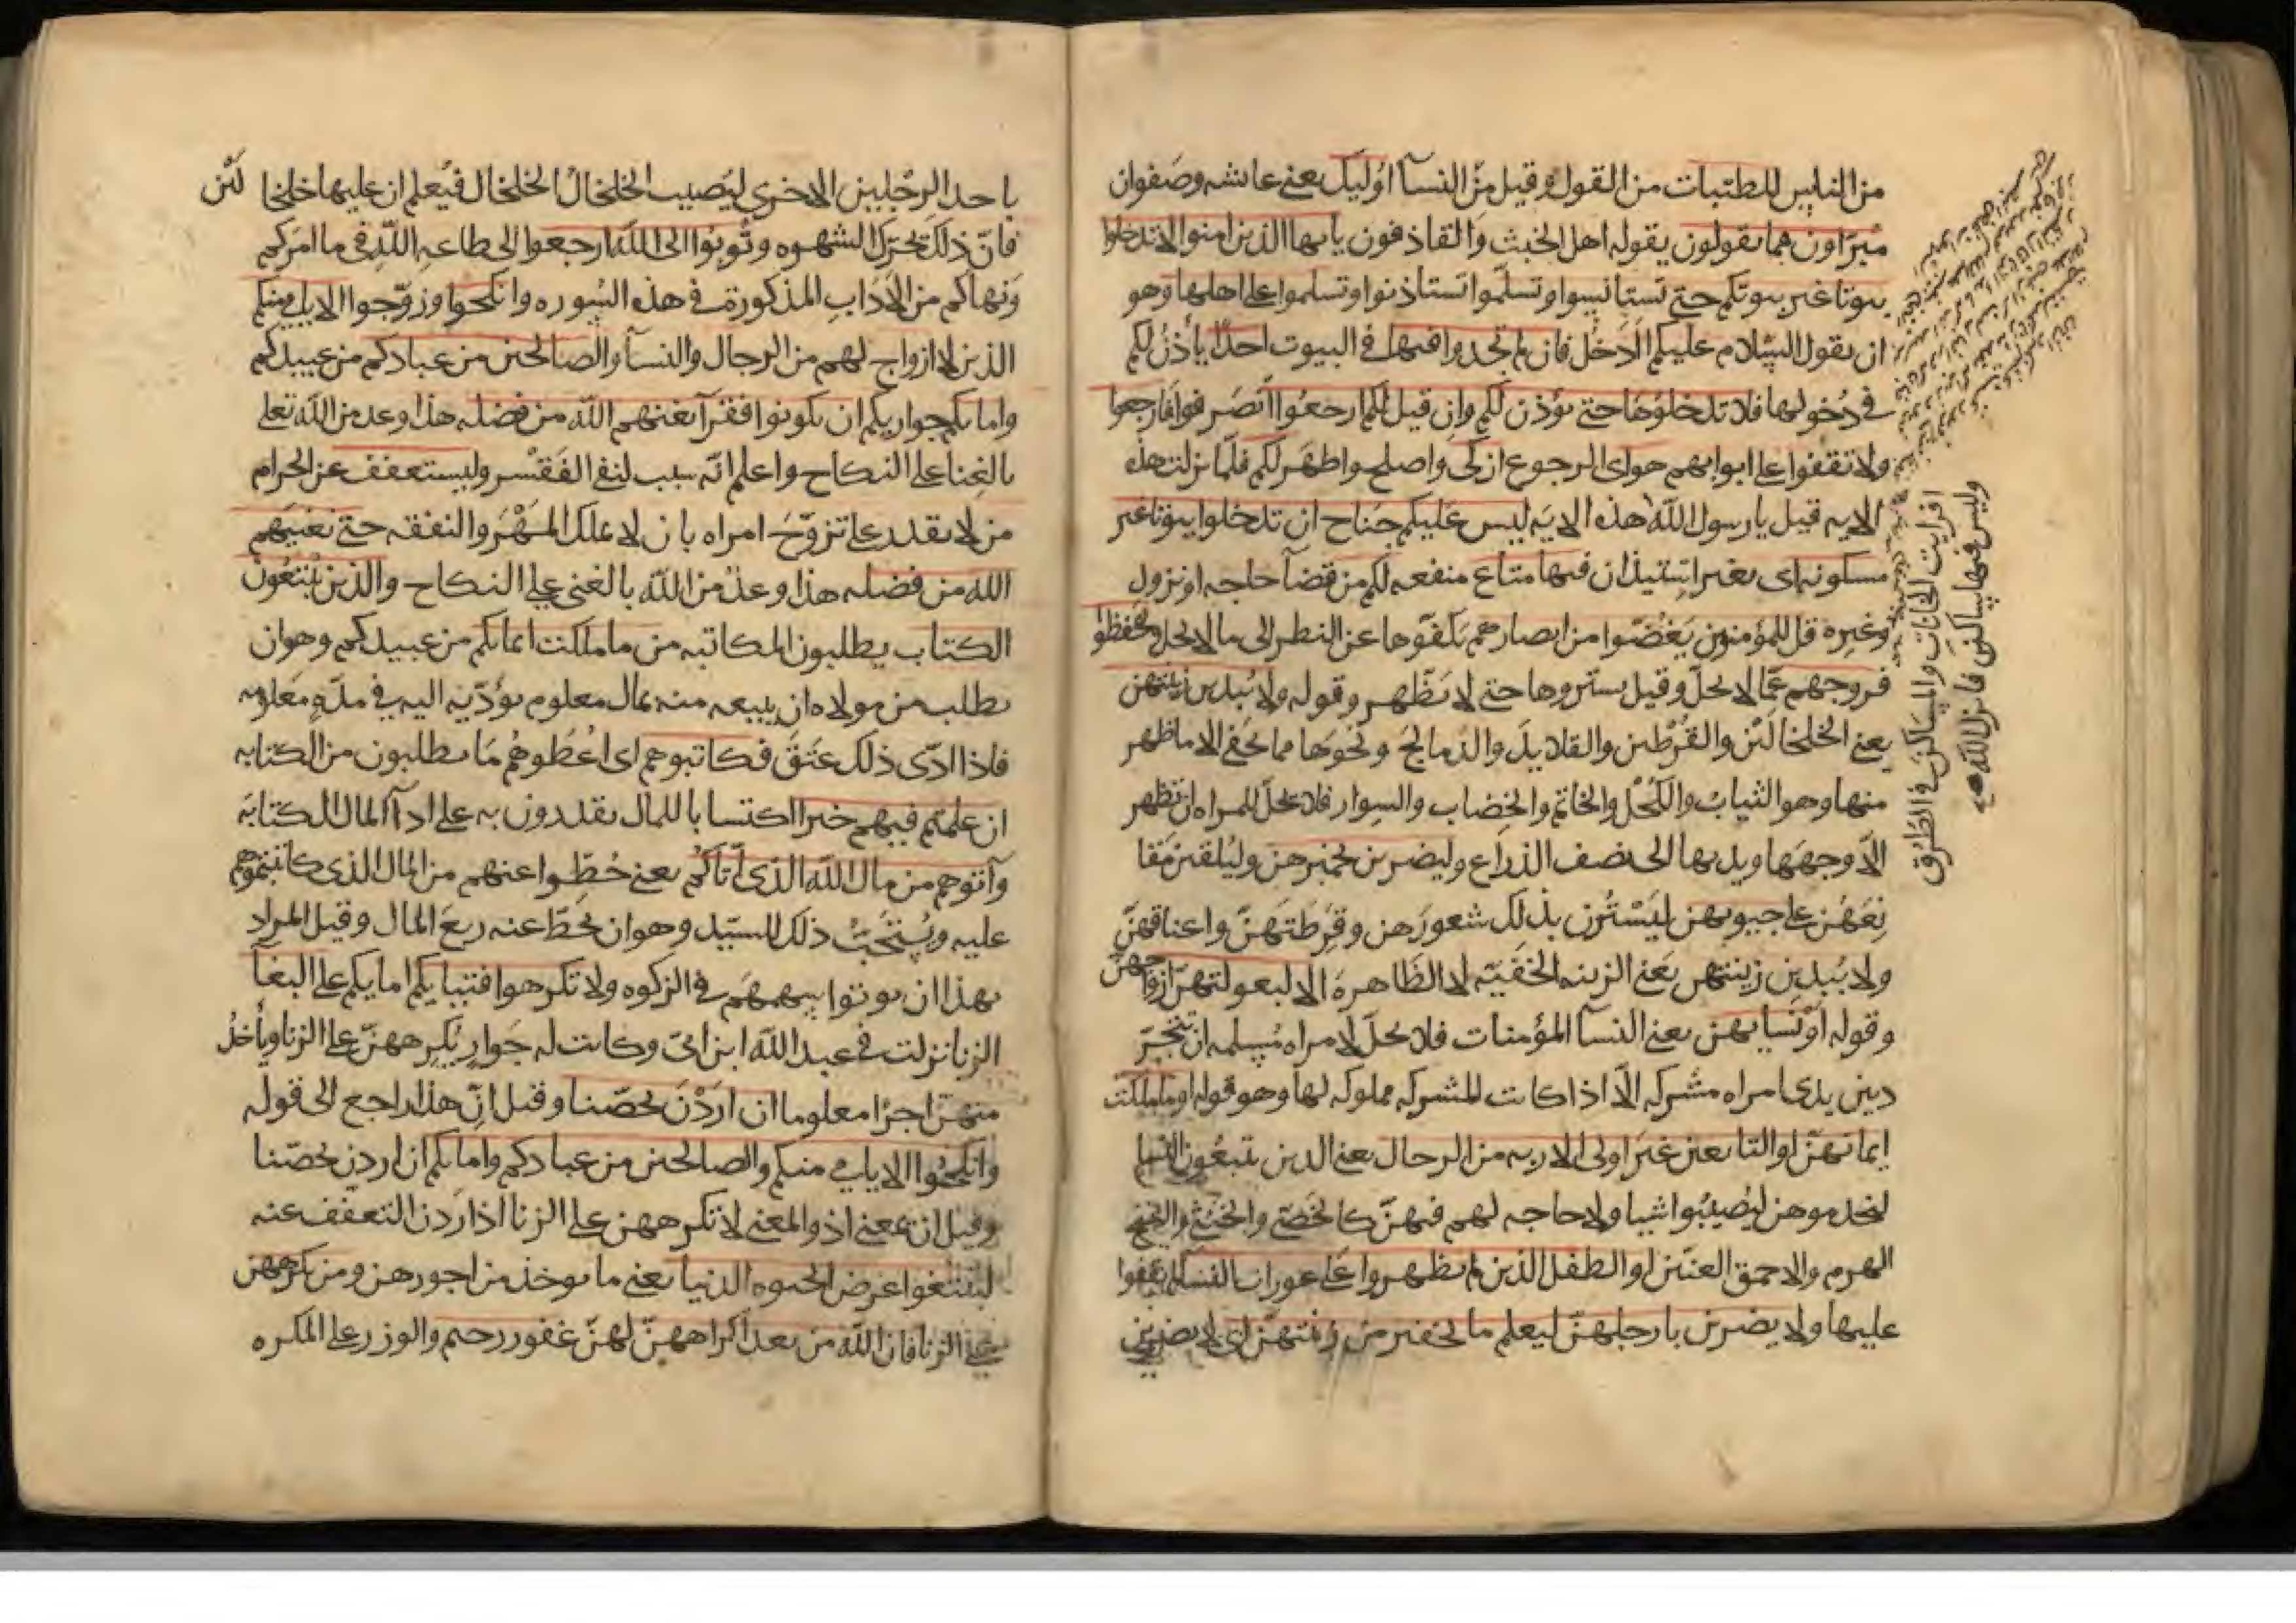 من الناس للطيبات من القول وقيل من النسآ اولیک يعنى عايشه وصفوان
مبرّاون مما يقولون يقوله اهل الخبث والقاذفون يايها الذين امنوا لا تدخلوا
بيوتا غير بيوتكم حتى تستانسوا وتسلّموا تستاذنوا وتسلموا على اهلها وهو
ان يقول السلام عليكم الدخل فان لم تجدوا فيها فى البيوت احدًا ياذن لكم
فى دخولها فلا تدخلوها حتى يؤذن لكم وان قيل لكم ارجعوا انصرفوا فارجعوا
ولا تقفوا على ابوابهم هو اى الرجوع ازكى واصلح واطهر لكم فلما نزلت هذه
الايه قيل يا رسول الله هذه الايه ليس عليكم جناح ان تدخلوا بيوتا غير
مسكونه اى بغير استيذان فيها متاع منفعه لكم من قضآ حاجه او نزول
وغيره قل للمؤمنين يغضّوا من ابصارهم يكفّوها عن النظر الى ما لا يحل ويحفظوا
فروجهم عمّا لا يحلّ وقيل يستروها حتى لا تظهر وقوله ولا يبدين زينتهن
يعنى الخلخالين والقرطين والقلايد والدمالج ونحوها مما يخفى الا ما ظهر
منها وهو الثياب والكحل والخاتم والخضاب والسوار فلا يحلّ للمراه ان تظهر
الّا وجهها ويديها الى نصف الذراع وليضربن بخمرهن وليلقين مقا
نعهن على جيوبهن ليسترن بذلك شعورهن وقرطتهنّ واعناقهنّ
ولا يبدين زينتهن يعنى الزينه الخفيّه لا الظاهرة الا لبعولتهنّ ازواجهنّ
وقوله او نسايهن يعنى النسآ المؤمنات فلا يحلّ لامراه مسلمه ان تتجرّ
د بين يدى امراه مشركه الّا اذا كانت المشركه مملوكه لها وهو قوله او ما ملكت
ايمانهنّ او التابعين غير اولى الاربه من الرجال يعنى الذين يتبعون النسا
ليخدموهن ليصيبوا شيا ولا حاجه لهم فيهنّ كالخصىّ والخنثى والشيخ
الهرم والاحمق العنّين او الطفل الذين لم يظهروا على عورات النسآ لم يقفوا
عليها ولا يضربن بارجلهنّ ليعلم ما يخفين من زينتهنّ اى لا يضربن
افرايت الخانات والمساكن فى الطرق
وليس فيها ساكن فانزل الله
باحد الرجلين الاخرى ليصيب الخلخالُ الخلخال فيُعلم ان عليها خلخا لين
فانّ ذلك يحرّك الشهوه وتوبوا الى الله ارجعوا الى طاعه الله فى ما امركم
ونهاكم من الاداب المذكورة فى هذه السوره وانكحوا وزوّجوا الايامى منكم
الذين لا ازواج لهم من الرجال والنسآ والصالحين من عبادكم من عبيدكم
وامايكم جواريكم ان يكونوا فقرآ يغنهم الله من فضله هذا وعد من الله تعلى
بالغنا على النكاح واعلم انّه سبب لنفى الفقر وليستعفف عن الحرام
من لا يقدر على تزوّج امراه بان لا يملك المهر والنفقه حتى يغنيهم
الله من فضله هذا وعدٌ من الله بالغنى على النكاح والذين يبتغون
الكتاب يطلبون المكاتبه من ما ملكت ايمانكم من عبيدكم وهو ان
يطلب من مولاه ان يبيعه منه بمال معلوم يؤدّيه اليه فى مدّةٍ معلومه
فاذا ادّى ذلك عتق فكاتبوهم اى اعطوهم ما يطلبون من الكتابه
ان علمتم فيهم خيرا اكتسابا للمال يقدرون به على ادآ المال للكتابه
وآتوهم من مال الله الذى آتاكم يعنى حُطّوا عنهم من المال الذى كاتبتموهم
عليه ويستحبّ ذلك للسيّد وهو ان يحطّ عنه ربع المال وقيل المراد
بهذا ان يوتوا سهمهم فى الزكوه ولا تكرهوا فتياتكم امايكم على البغآ
الزنا نزلت فى عبد الله ابن ابىّ وكانت له جوارٍ يكرههنّ على الزنا وياخذ
منهنّ اجرًا معلوما ان اردن تحصّنا وقيل انّ هذا راجع الى قوله
وانكحوا الايامى منكم والصالحين من عبادكم وامايكم ان اردن تحصّنا
وقيل ان بمعنى اذ والمعنى لا تكرههن على الزنا اذا اردن التعفف عنه
لتبتغوا عرض الحيوه الدنيا يعنى ما يوخذ من اجورهن ومن يكرههن
على الزنا فان الله من بعد اكراههنّ لهنّ غفور رحيم والوزر على المكره